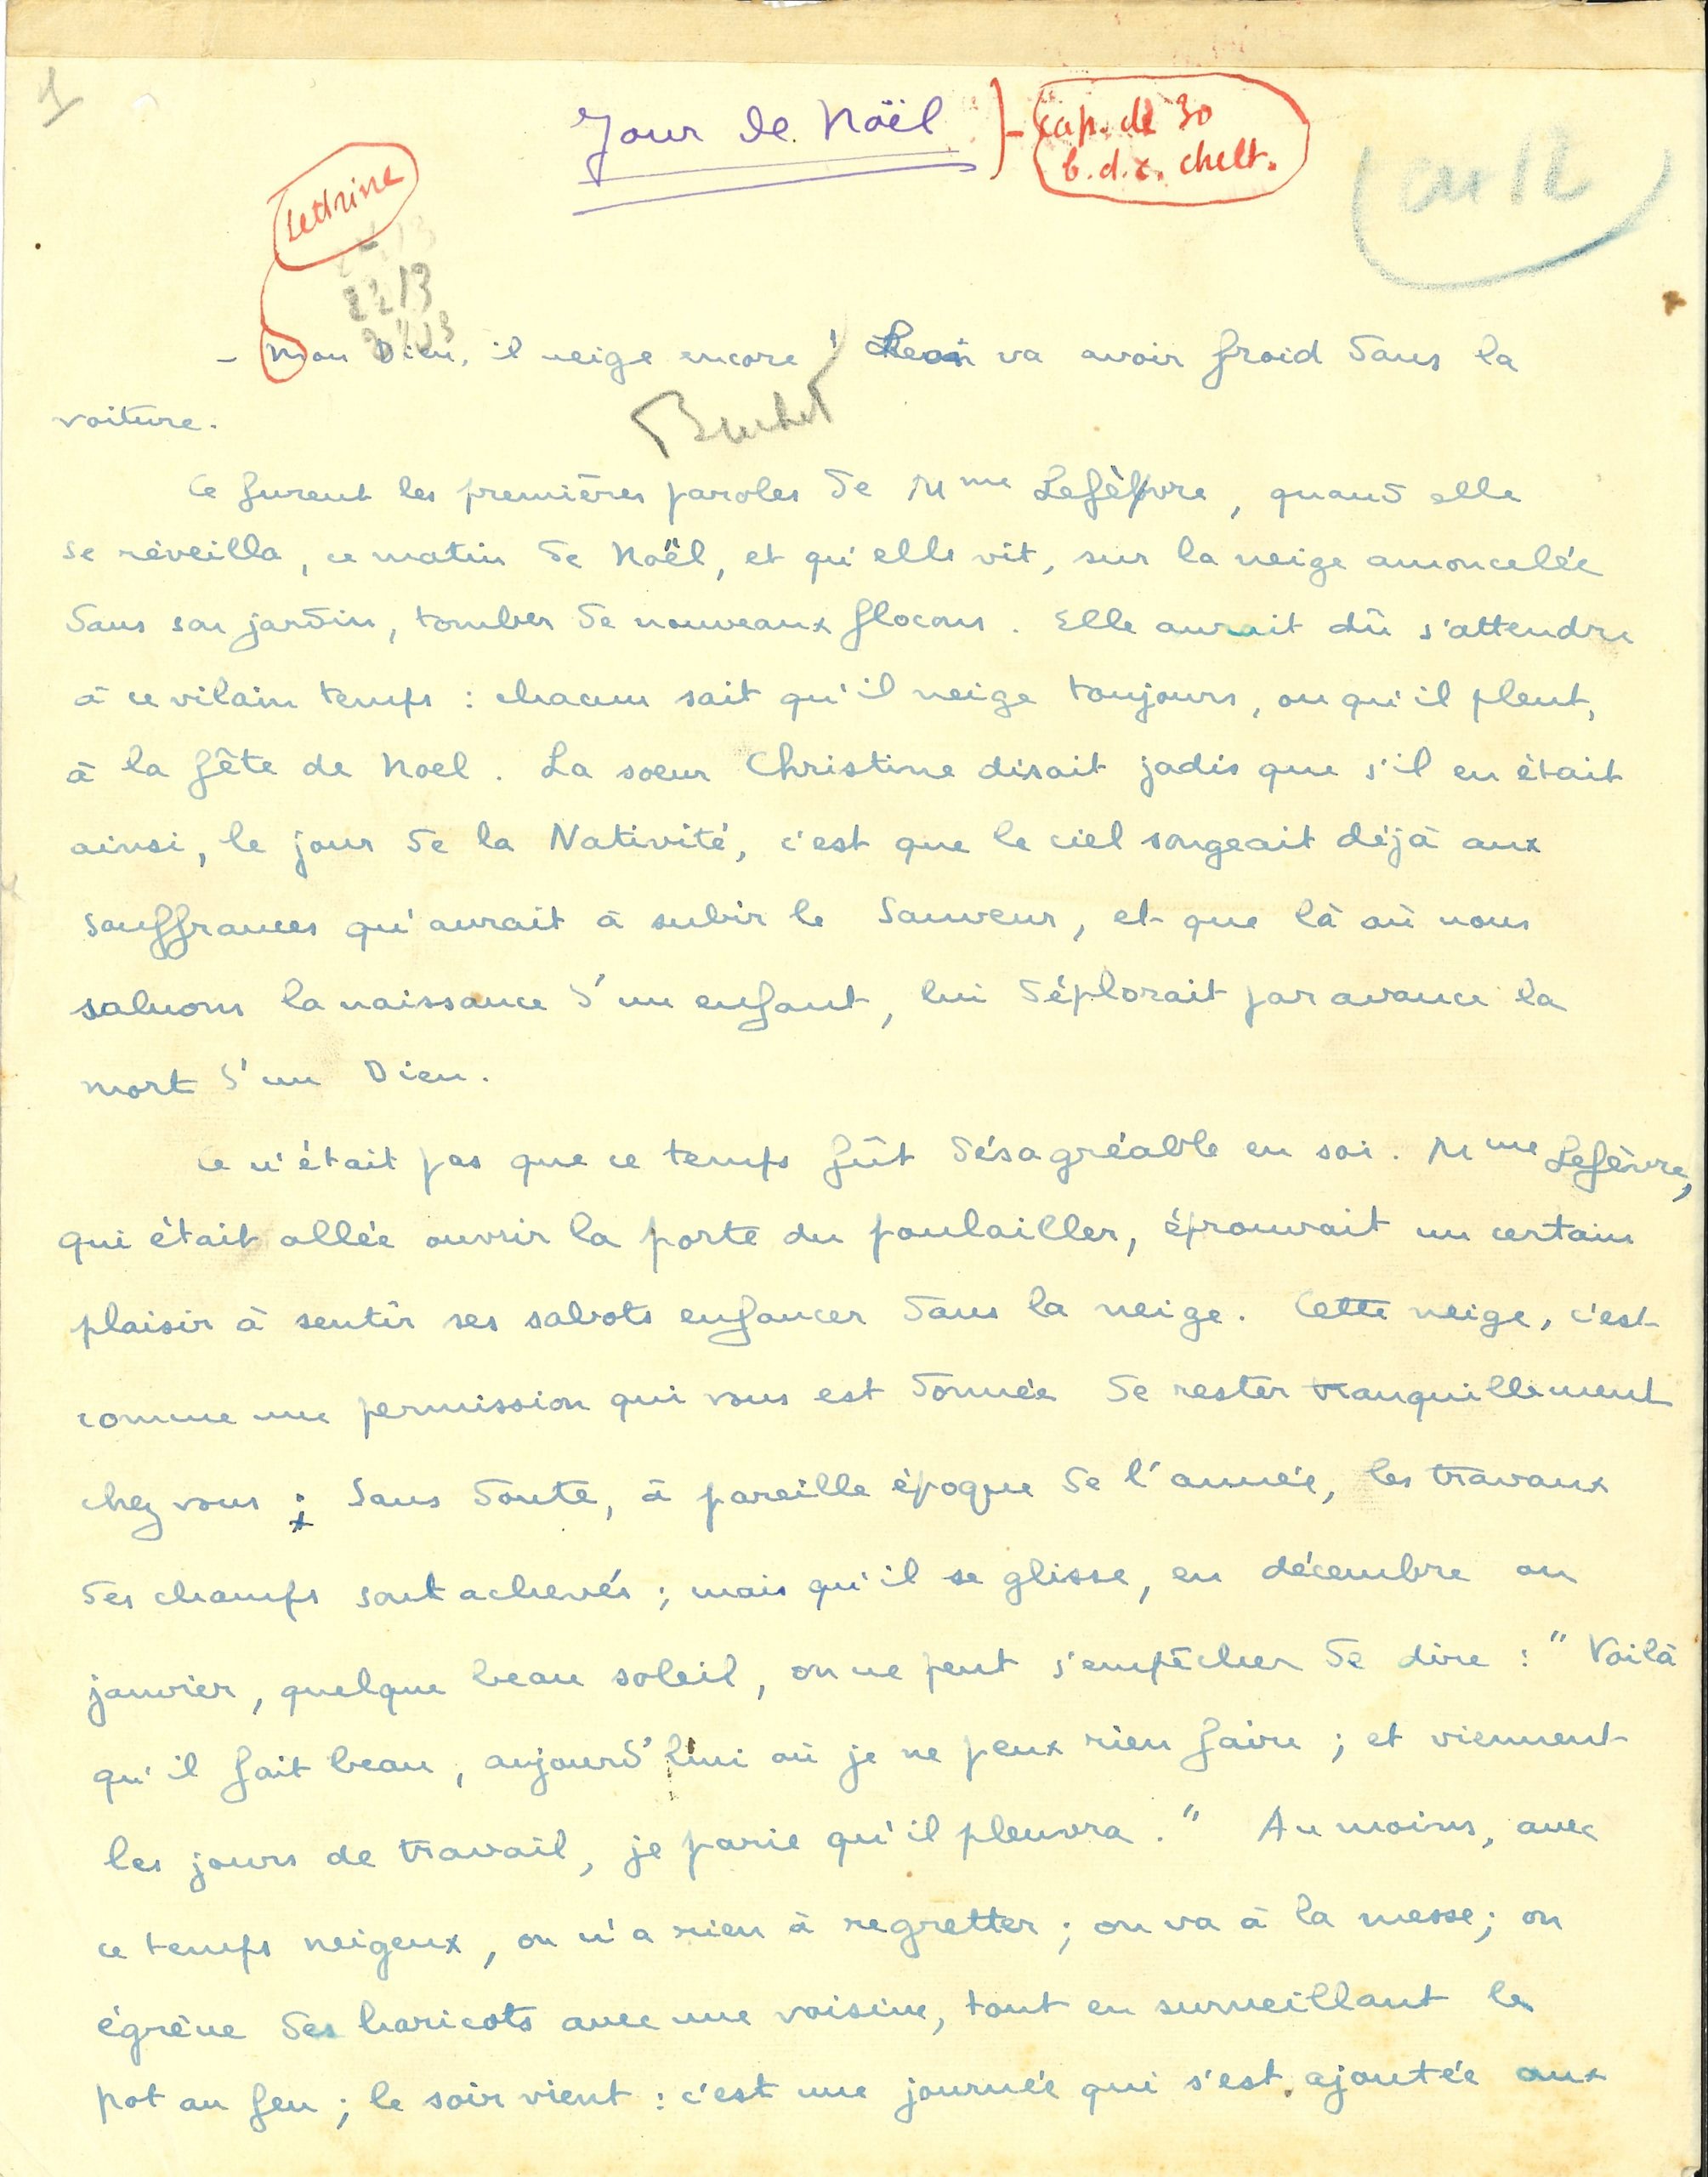 1
Jour de Noël
cap. de 30
b.d.c. chelt.
Lettrine
22/3
- Mon Dieu, il neige encore ! Léon va avoir froid dans la
voiture.
Ce furent les premières paroles de Mme Lefèvre, quand elle
se réveilla, ce matin de Noël, et qu'elle vit, sur la neige amoncelée
dans son jardin, tomber de nouveaux flocons. Elle aurait dû s'attendre
à ce vilain temps : chacun sait qu'il neige toujours, ou qu'il pleut,
à la fête de Noel. La soeur Christine disait jadis que s'il en était
ainsi, le jour de la Nativité, c'est que le ciel songeait déjà aux
souffrances qu'aurait à subir le Sauveur, et que là où nous
saluons la naissance d'un enfant, lui déplorait par avance la
mort d'un Dieu.
Ce n'était pas que ce temps fût désagréable en soi. Mme Lefèvre,
qui était allée ouvrir la porte du poulailler, éprouvait un certain
plaisir à sentir ses sabots enfoncer dans la neige. Cette neige, c'est
comme une permission qui vous est donnée de rester tranquillement
chez vous ; Sans doute, à pareille époque de l'année, les travaux
des champs sont achevés ; mais qu'il se glisse, en décembre ou
janvier, quelque beau soleil, on ne peut s'empêcher de dire : " Voilà
qu'il fait beau, aujourd'hui où je ne peux rien faire ; et viennent
les jours de travail, je parie qu'il pleuvra. " Au moins, avec
ce temps neigeux, on n'a rien à regretter ; on va à la messe ; on
égrène des haricots avec une voisine, tout en surveillant le
pot au feu ; le soir vient : c'est une journée qui s'est ajoutée aux